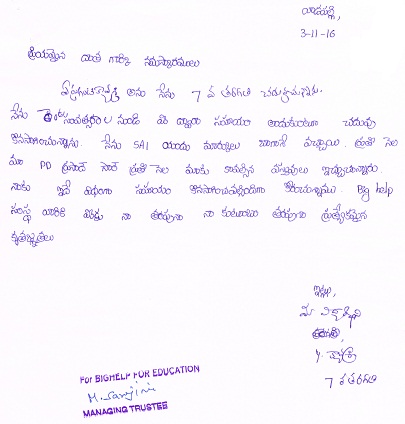 3-11-16
ప్రియమైన దాత గారికి నమస్కారములు
అను నేను 7 వ తరగతి చదువుచున్నాను.
నేను నుండి మీ ద్వారా సహాయం అందుకుంటూ చదువు
కొనసాగించుచున్నాను. నేను SAI యందు మార్కులు బాగానే వచ్చాయి. ప్రతి నెల
మా PD ప్రసాద్ సారే ప్రతి నెల మాకు కావలసిన వస్తువులు ఇచ్చుచున్నారు.
నాకు ఇదే విధంగా సహాయం కోరుచున్నాము. Big help
సంస్థ వారికి మీకు నా తరపున నా కుటుంబం తరపున ప్రత్యేకమైన
కృతజ్ఞతలు
ఇట్లు,
మీ విద్యార్థిని
7 వ తరగతి
For BIGHELP FOR EDUCATION
M. Sarojini
MANAGING TRUSTEE